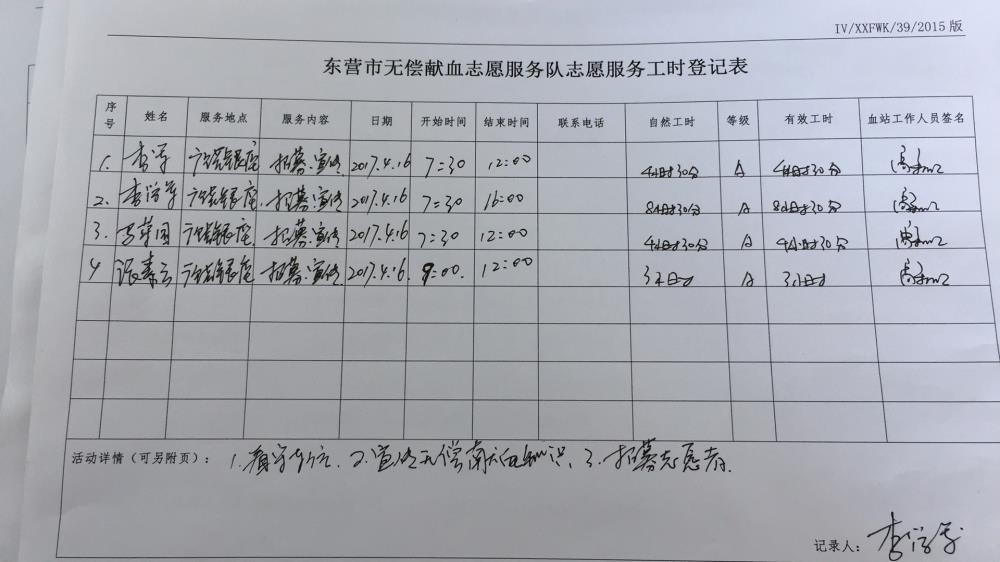 IV/XXFWK/39/2015 版
东营市无偿献血志愿服务队志愿服务工时登记表
序号 姓名 服务地点 服务内容 日期 开始时间 结束时间 联系电话 自然工时 等级 有效工时 血站工作人员签名
1. 李 银座 招募.宣传 2017.4.16 7:30 12:00 4小时30分 A 4小时30分
2. 李学军 银座. 招募.宣传 2017.4.16 7:30 16:00 8小时30分 A 8小时30分
3. 银座. 招募.宣传 2017.4.16 7:30 12:00 4小时30分 A 4小时30分
4 张 银座 招募.宣传 2017.4.16. 9:00. 12:00 3小时 A 3小时
活动详情（可另附页）： 1. 2.宣传无偿献血知识、3.招募志愿者.
记录人： 李学军